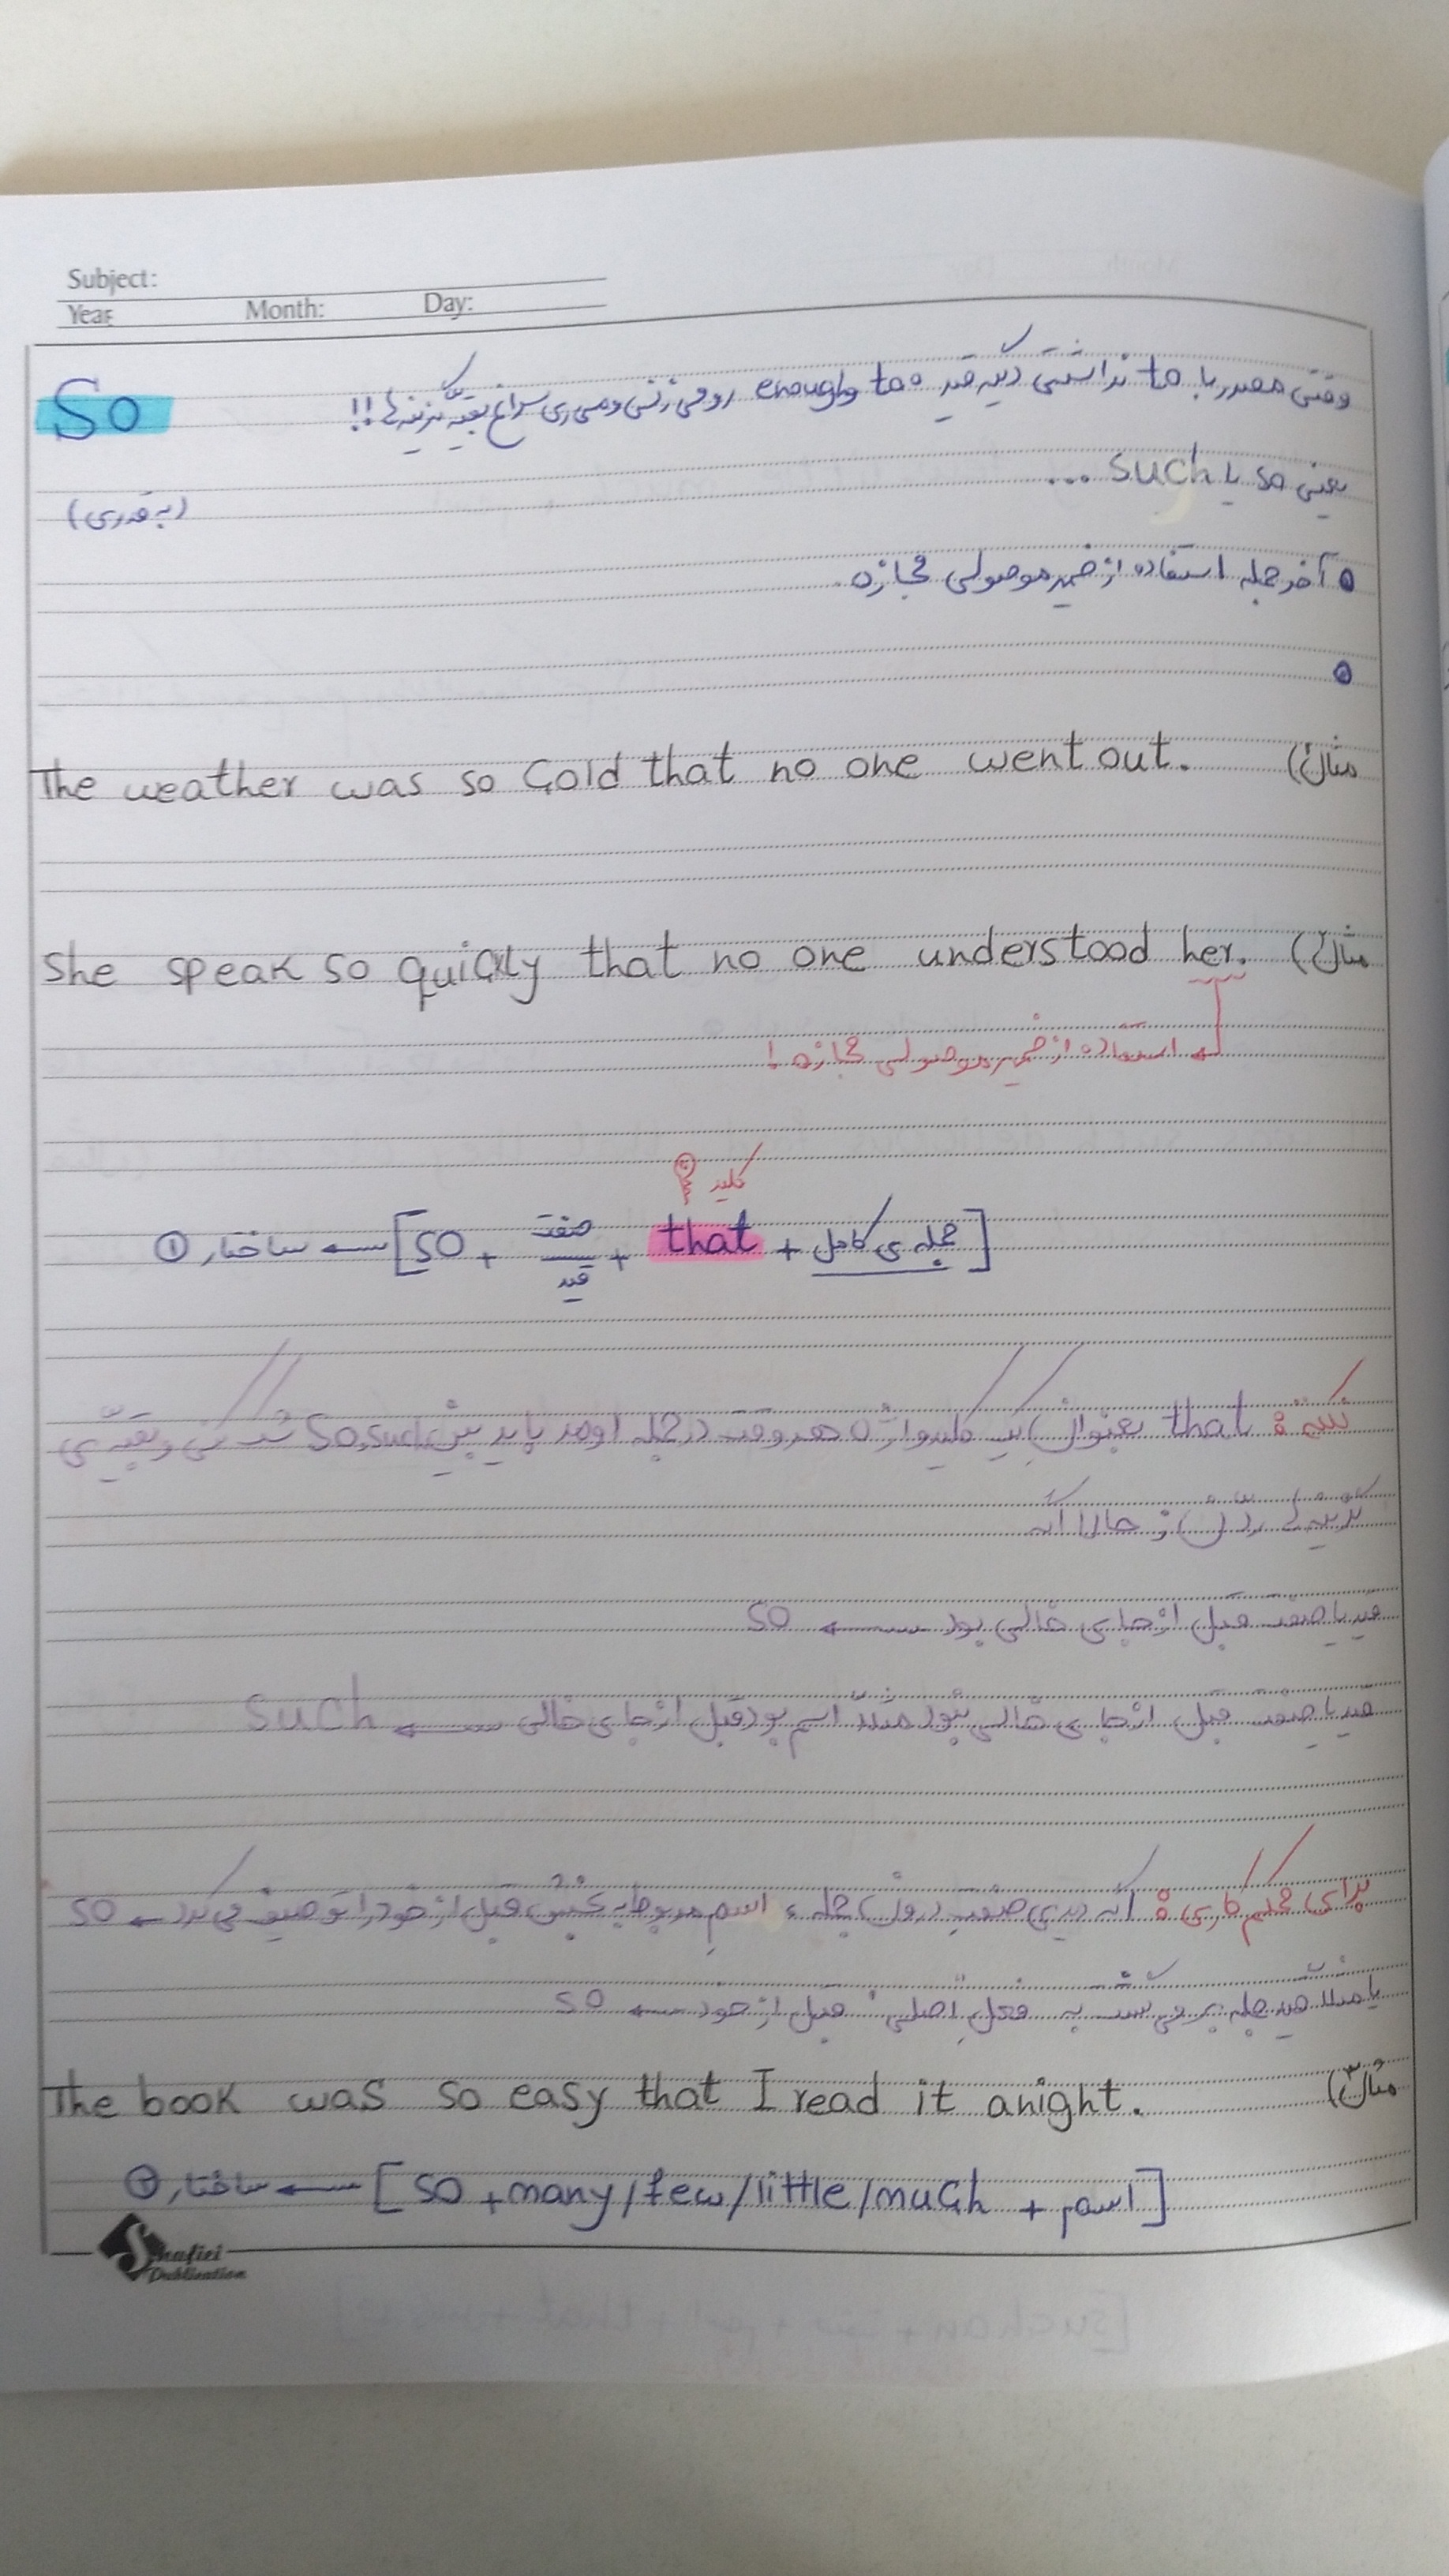 Subject:
Year: Month: Day:
So
وقتی مصدر با to نداشتی دیگه قید too و enough رو می زنی و می ری سراغ بقیه گزینه ها!!
یعنی so یا such ...
(به قدری)
آخر جمله استفاده از ضمیر موصولی مجازه.
The weather was so cold that no one went out. (مثال۱
She speak so quickly that no one understood her. (مثال۲
استفاده از ضمیر موصولی مجازه!
کلید
ساختار ① ← [so + صفت / قید + that + جمله ی کامل]
نکته: that بعنوان یک کلیدواژه هر وقت در جمله اومد باید بین so، such شک کنی و بقیه ی
گزینه ها رد ن؛ حالا اگه
قید یا صفت قبل از جای خالی بود ← so
قید یا صفت قبل از جای خالی نبود مثلا اسم بود قبل از جای خالی ← such
برای محکم کاری: اگه دیدی صفت درون جمله، اسم مربوط به بخش قبل از خود را توصیف می کرد ← so
یا مثلا قید جمله بر می گشت به فعل اصلی قبل از خود ← so
The book was so easy that I read it anight. (مثال۳
ساختار ② ← [so + many/few/little/much + اسم]
Shafiei
Publication